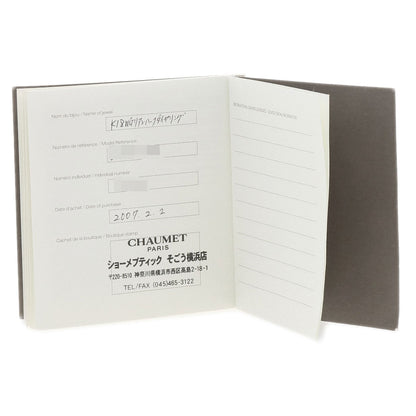 Nom du bijou / Name of jewel
K18WGリアンハーフダイヤリング
Numéro de référence / Model Reference
Numéro individuel / Individual number
Date d'achat / Date of purchase
2007 2. 2
Cachet de la boutique / Boutique stamp
CHAUMET
PARIS
ショーメブティック そごう横浜店
〒220-8510 神奈川県横浜市西区高島2-18-1
TEL/FAX (045)465-3122